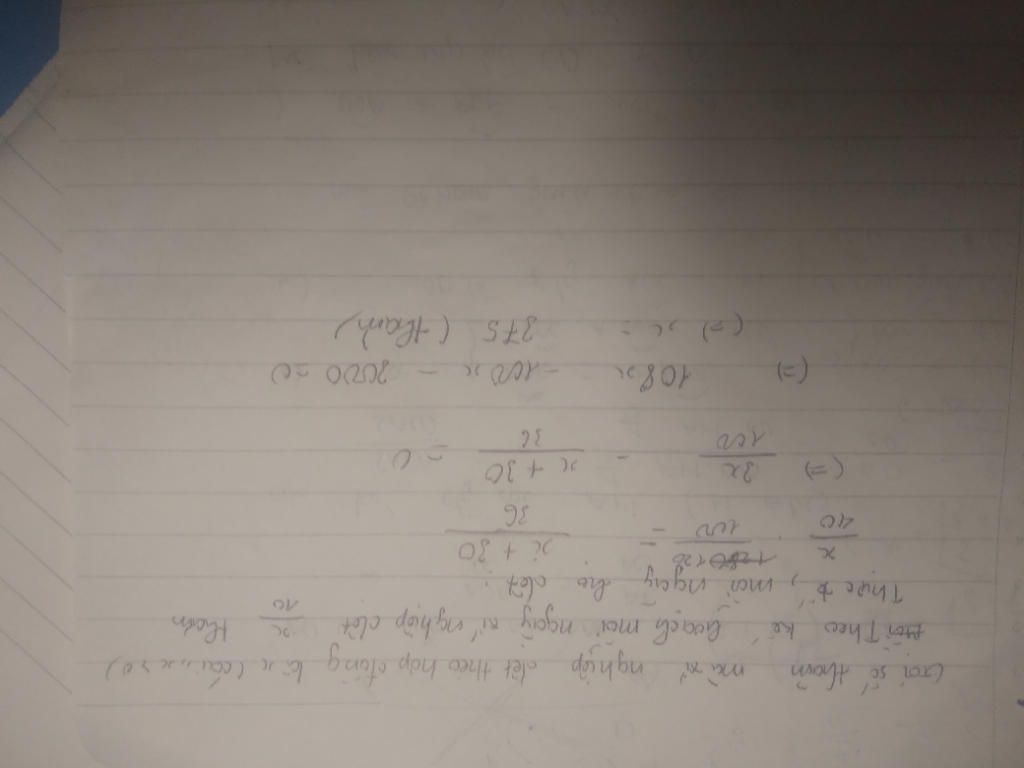 Gọi số thảm mà xí nghiệp dệt theo hợp đồng là x (cái, x > 0)
Theo kế hoạch mỗi ngày xí nghiệp dệt x/10 thảm
Thực tế, mỗi ngày họ dệt:
x/40 . 120/100 = x + 30/36
(=) 3x/100 - x + 30/36 = 0
(=) 108x - 100x - 3000 = 0
(=) x = 375 (thảm)